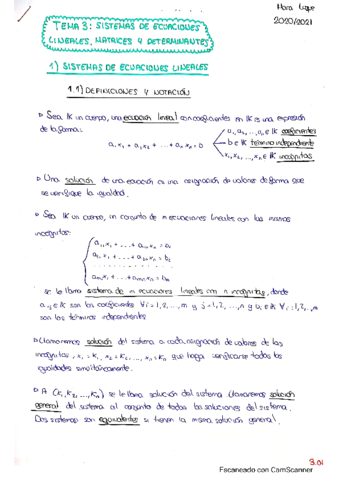 Mora Luque
2020/2021
TEMA 3: SISTEMAS DE ECUACIONES
LINEALES, MATRICES Y DETERMINANTES
1) SISTEMAS DE ECUACIONES LINEALES
1.1) DEFINICIONES Y NOTACIÓN
Sea K un cuerpo, una ecuación lineal con coeficientes en K es una expresión
de la forma:
a₁x₁ + a₂x₂ + ... + aₙxₙ = b
a₁, a₂, ..., aₙ ∈ K coeficientes
b ∈ K término independiente
x₁, x₂, ..., xₙ ∈ K incógnitas
Una solución de una ecuación es una asignación de valores de forma que
se verifique la igualdad.
Sea K un cuerpo, un conjunto de m ecuaciones lineales con las mismas
incógnitas:
a₁₁x₁ + ... + a₁ₙxₙ = b₁
a₂₁x₁ + ... + a₂ₙxₙ = b₂
..............
aₘ₁x₁ + ... + aₘₙxₙ = bₘ
se le llama sistema de m ecuaciones lineales con n incógnitas, donde
aᵢⱼ ∈ K son los coeficientes ∀i = 1, 2, ..., m y j = 1, 2, ..., n y bᵢ ∈ K ∀i = 1, 2, ..., m
son los términos independientes.
Llamaremos solución del sistema a cada asignación de valores de las
incógnitas, x₁ = K₁, x₂ = K₂, ..., xₙ = Kₙ que haga verificarse todas las
igualdades simultáneamente.
A (K₁, K₂, ..., Kₙ) se le llama solución del sistema (llamaremos solución
general del sistema al conjunto de todas las soluciones del sistema.
Dos sistemas son equivalentes si tienen la misma solución general.
3.01
Escaneado con CamScanner